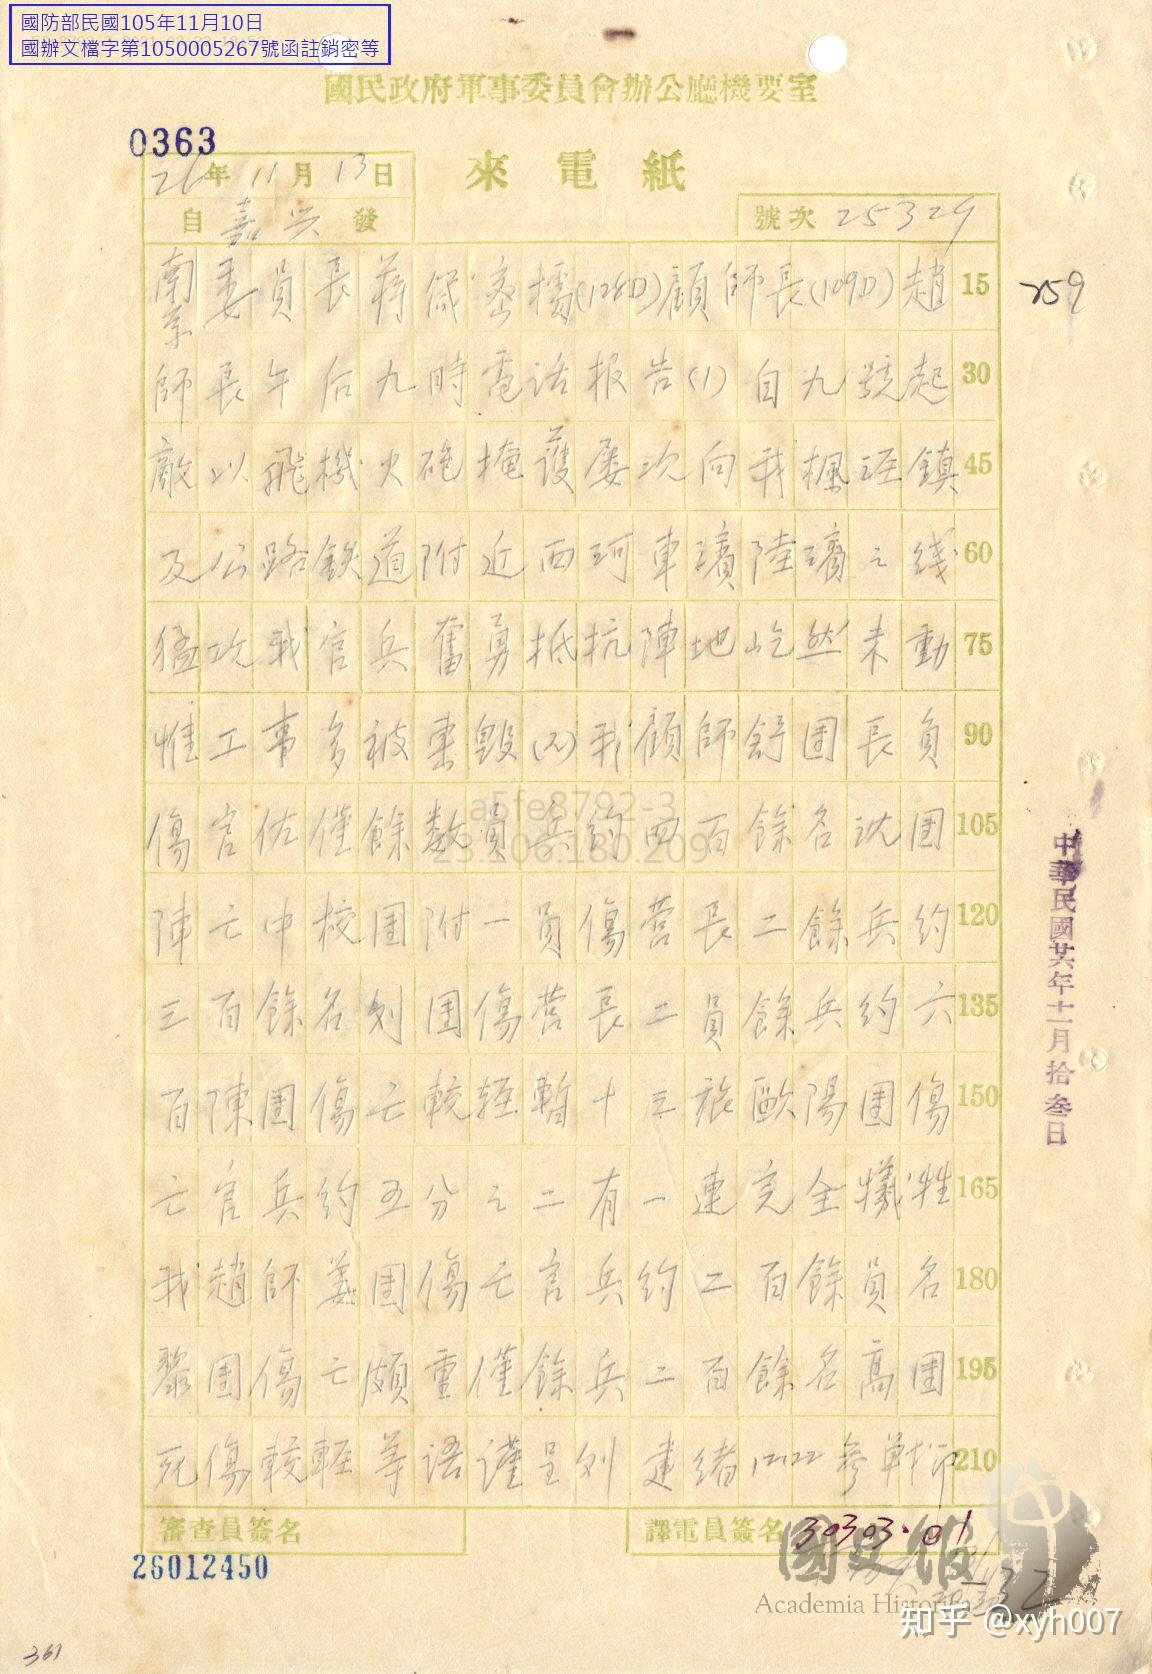 國防部民國105年11月10日
國辦文檔字第1050005267號函註銷密等
國民政府軍事委員會辦公廳機要室
0363
來電紙
26年11月13日
自嘉兴發
號次 25329
南京委員長蔣 密據(128D)顧師長(109D)趙 15
259
師長午后九時電話报告(1)自九號起 30
敵以飛機火砲掩護屡次向我楓涇鎮 45
及公路鉄道附近西珂車濱陸璃之线 60
猛攻我官兵奮勇抵抗陣地屹然未動 75
惟工事多被炸毀(2)我顧師舒团長負 90
a5fe8792-3
23.206.180.209
傷官佐僅餘数員兵約四百餘名沈团 105
陣亡中校团附一員傷营長二餘兵約 120
三百餘名刘团傷营長二員餘兵約六 135
百陳团傷亡較轻暫十三旅歐陽团傷 150
亡官兵約五分之二有一連完全犧牲 165
我趙師姜团傷亡官兵約二百餘員名 180
黎团傷亡頗重僅餘兵二百餘名高团 195
死傷較輕等语谨呈刘建绪12122參 印 210
中華民國廿六年十一月拾叁日
審查員簽名
譯電員簽名 30303·01
26012450
國史館
Academia Historica
32
知乎 @xyh007
361